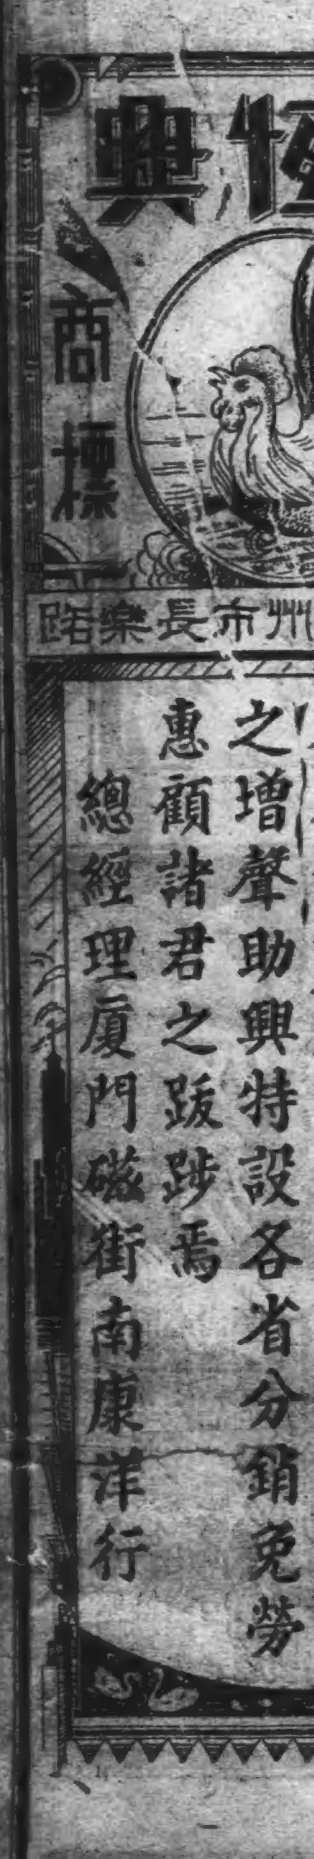 興
商標
州市長樂路
之增聲助興特設各省分銷免勞
惠顧諸君之跋涉焉
總經理廈門磁街南康洋行